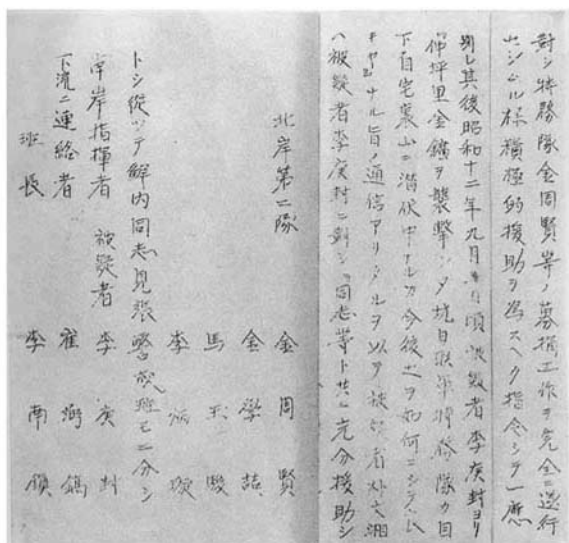 對シ特務隊金周賢等ノ募捐工作ヲ完全ニ遂行
セシムル様積極的援助ヲ為スヘク指令シテ一應
別レ其後昭和十二年九月 頃被疑者李庚封ヨリ
坪里金鑛ヲ襲撃シタ抗日聯軍特務隊カ目
下自宅裏山ニ潜伏中ナルカ今後之ヲ如何ニシテヨ
キヤ ナル旨ノ通信アリタルヲ以テ被疑者朴
ハ被疑者李庚封ニ對シ「同志等ト共ニ充分援助シ
北岸第二隊
金周賢
金學
馬
李
トシ從ツテ鮮内同志見張警戒班モ二分シ
南岸指揮者 被疑者 李庚封
下流ニ連絡者 崔
班長 李南